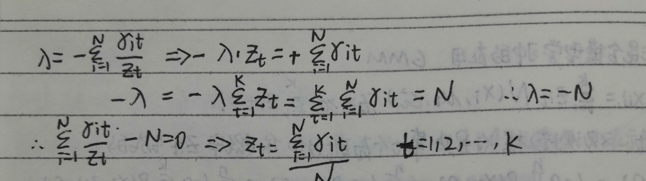 λ = -∑_{i=1}^{N} γit/zt => -λ·zt = +∑_{i=1}^{N} γit
-λ = -λ∑_{t=1}^{K} zt = ∑_{t=1}^{K} ∑_{i=1}^{N} γit = N ∴ λ = -N
∴ ∑_{i=1}^{N} γit/zt - N = 0 => zt = ∑_{i=1}^{N} γit / N t = 1, 2, ···, K